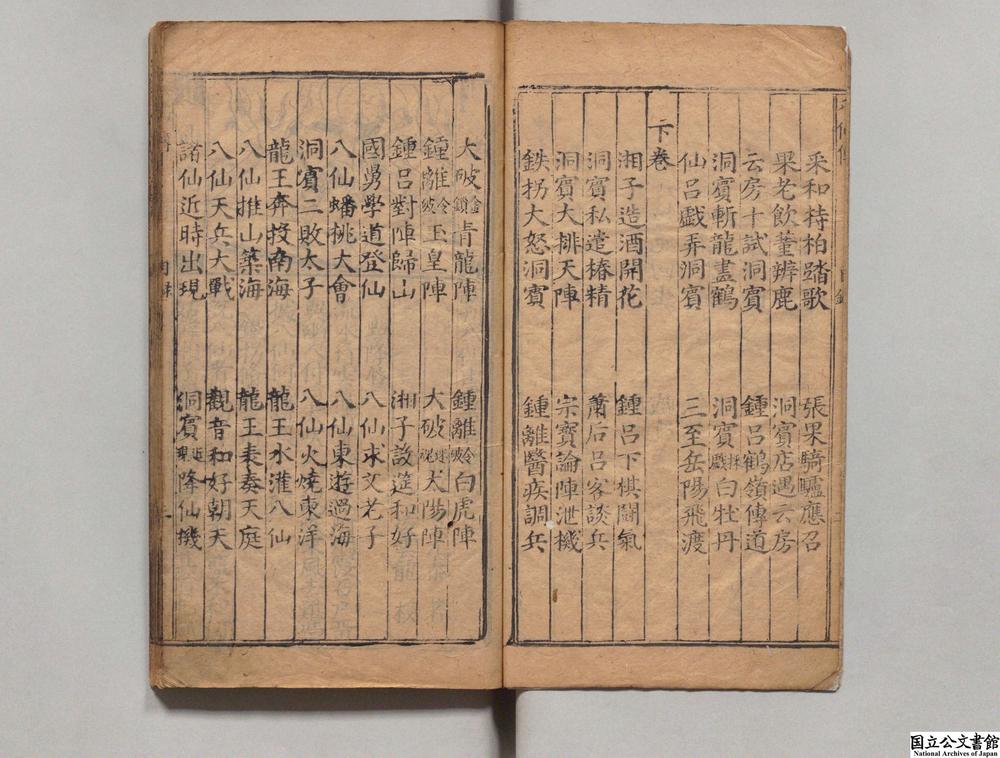 采和持柏踏歌 張果騎驢應召
果老飲菫辨鹿 洞賓店遇云房
云房十試洞賓 鍾呂鶴嶺傳道
洞賓斬龍畫鶴 洞賓戲白牡丹
仙呂戯弄洞賓 三至岳陽飛渡
下卷
湘子造酒開花 鍾呂下棋鬪氣
洞賓私遣椿精 蕭后呂客談兵
洞賓大排天陣 宗寶論陣泄機
鉄拐大怒洞賓 鍾離醫疾調兵
大破金鎖青龍陣 鍾離令破白虎陣
鍾離令破玉皇陣 大破迷魂太陽陣
鍾呂對陣歸山 湘子設筵和好
國舅學道登仙 八仙求文老子
八仙蟠桃大會 八仙東遊過海
洞賓二敗太子 八仙火燒東洋
龍王奔投南海 龍王水灌八仙
八仙推山築海 龍王表奏天庭
八仙天兵大戰 觀音和好朝天
諸仙近時出現 洞賓近現降仙機
目録
三
国立公文書館
National Archives of Japan